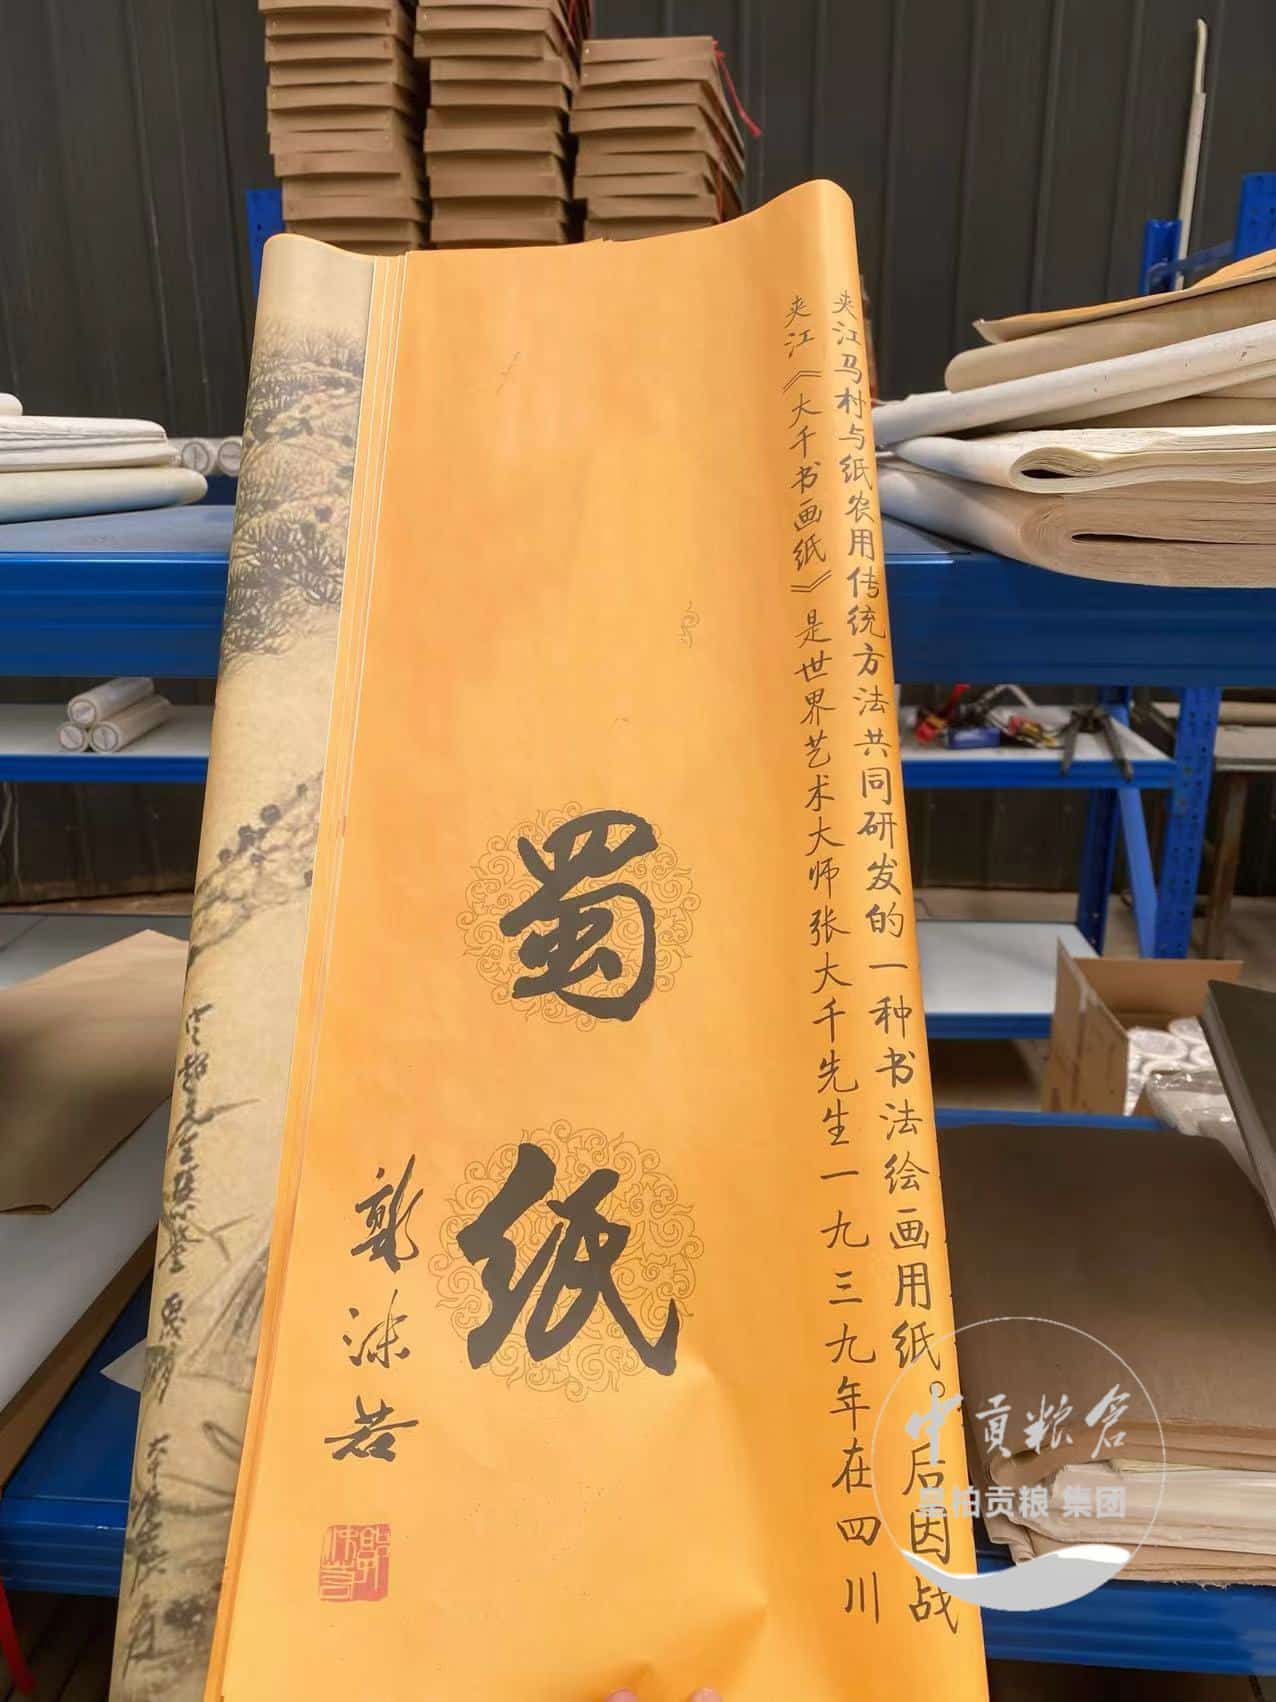 蜀纸
郭沫若
夹江《大千书画纸》是世界艺术大师张大千先生一九三九年在四川
夹江马村与纸农用传统方法共同研发的一种书法绘画用纸。后因战
中贡粮仓
皇柏贡粮 集团